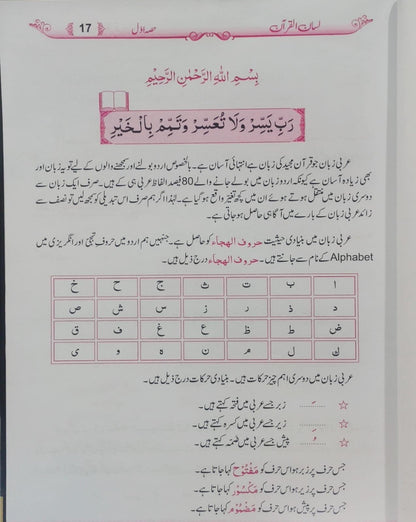 لسان القرآن حصہ اوّل 17
بِسْمِ اللّٰهِ الرَّحْمٰنِ الرَّحِيْمِ
رَبِّ يَسِّرْ وَلَا تُعَسِّرْ وَتَمِّمْ بِالْخَيْرِ
عربی زبان جو قرآن مجید کی زبان ہے انتہائی آسان ہے۔ بالخصوص اردو بولنے اور سمجھنے والوں کے لیے تو یہ زبان اور
بھی زیادہ آسان ہے کیونکہ اردو زبان میں بولے جانے والے 80 فیصد الفاظ عربی ہی کے ہیں۔ صرف ایک زبان سے
دوسری زبان میں منتقل ہوتے ہوئے ان میں کچھ تغیّر واقع ہو گیا ہے۔ لہٰذا اگر ہم صرف اس تبدیلی کو سمجھ لیں تو نصف سے
زائد عربی زبان کے بارے میں آگاہی حاصل ہو جاتی ہے۔
عربی زبان میں بنیادی حیثیت حروف الهجاء کو حاصل ہے۔ جنہیں ہم اردو میں حروف تہجّی اور انگریزی میں
Alphabet کے نام سے جانتے ہیں۔ حروف الهجاء درج ذیل ہیں۔
ا ب ت ث ج ح خ
د ذ ر ز س ش ص
ض ط ظ ع غ ف ق
ك ل م ن و ہ ی
عربی زبان میں دوسری اہم چیز حرکات ہیں۔ بنیادی حرکات درج ذیل ہیں۔
☆ ـَ زبر جسے عربی میں فتحہ کہتے ہیں۔
☆ ـِ زیر جسے عربی میں کسرہ کہتے ہیں۔
☆ ـُ پیش جسے عربی میں ضمّہ کہتے ہیں۔
جس حرف پر زبر ہو اس حرف کو مَفْتُوْح کہا جاتا ہے۔
جس حرف پر زیر ہو اس حرف کو مَكْسُوْر کہا جاتا ہے۔
جس حرف پر پیش ہو اس حرف کو مَضْمُوْم کہا جاتا ہے۔